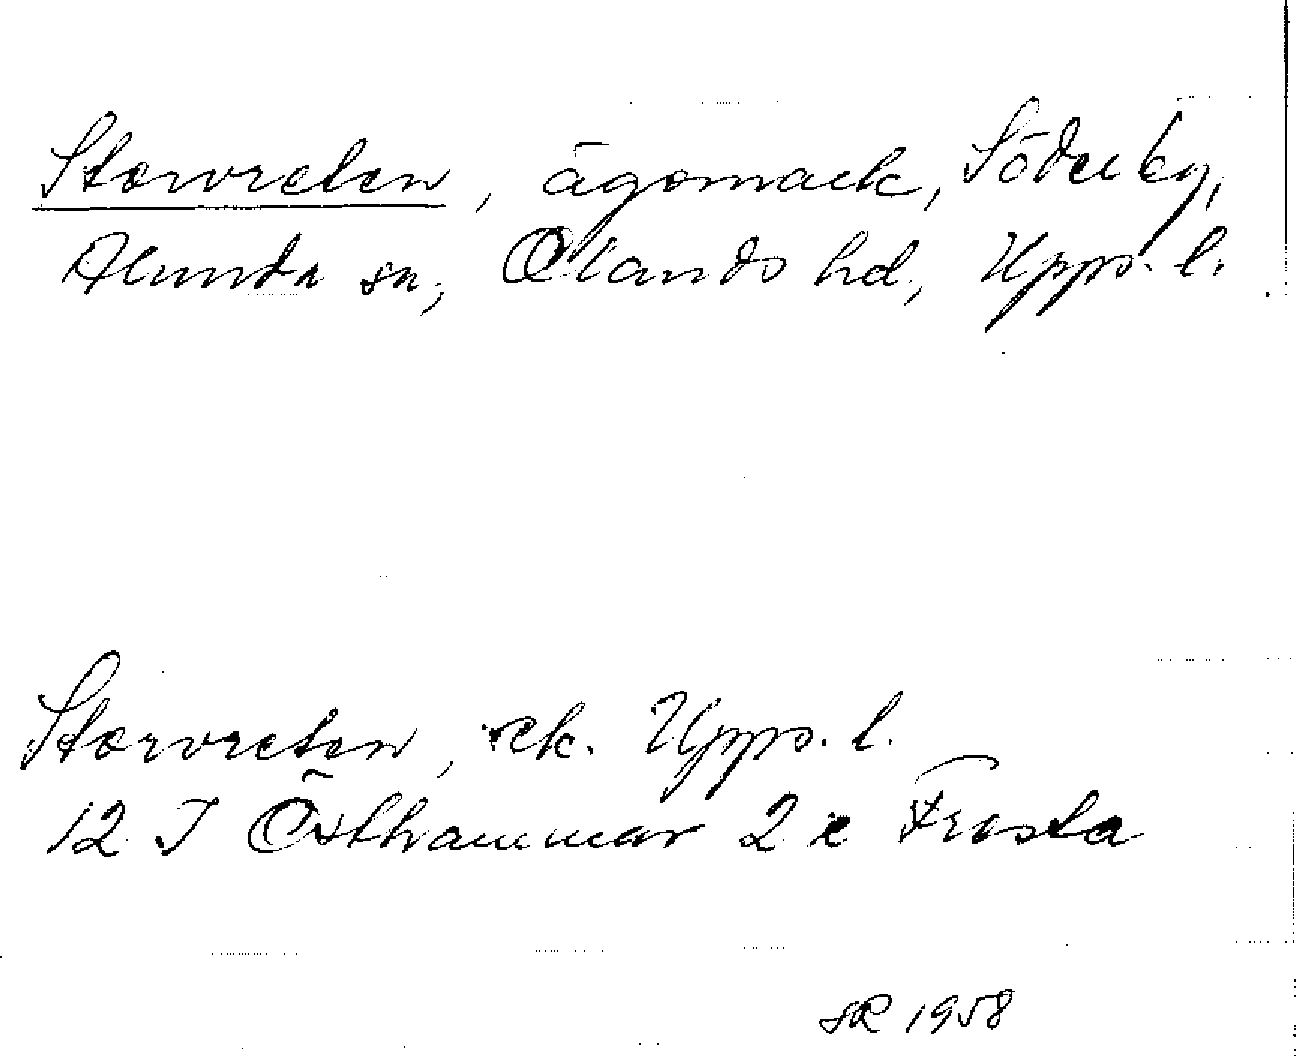 Storvreten, ägomark, Söderby,
Alunda sn, Olands hd, Upps. l.
Storvreten, ek. Upps. l.
12 I Östhammar 2 e Frösta
SR 1958